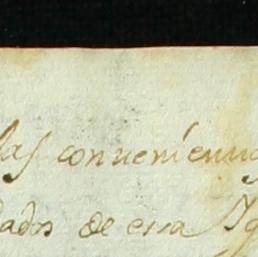 las conuenienc
dados de essa Ig